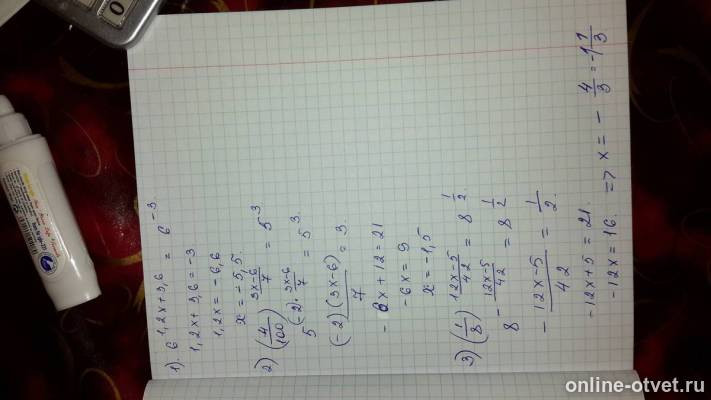 1). 6^{1,2x+3,6} = 6^{-3}
1,2x+3,6 = -3
1,2x = -6,6
x = -5,5.
2) (4/100)^{(3x-6)/7} = 5^3
5^{(-2)·(3x-6)/7} = 5^3.
(-2)(3x-6)/7 = 3.
-6x+12=21
-6x = 9
x = -1,5
3) (1/8)^{(12x-5)/42} = 8^{1/2}
8^{-(12x-5)/42} = 8^{1/2}
-(12x-5)/42 = 1/2.
-12x+5 = 21.
-12x = 16. => x = -4/3 = -1 1/3
0
online-otvet.ru